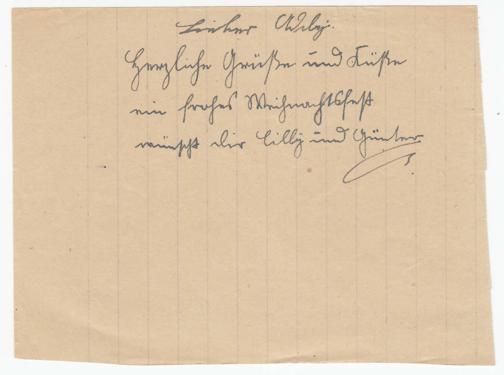 Lieber Adly.
Herzliche Grüße und Küsse
ein frohes Weihnachtsfest
wünscht dir Cilly und Günter